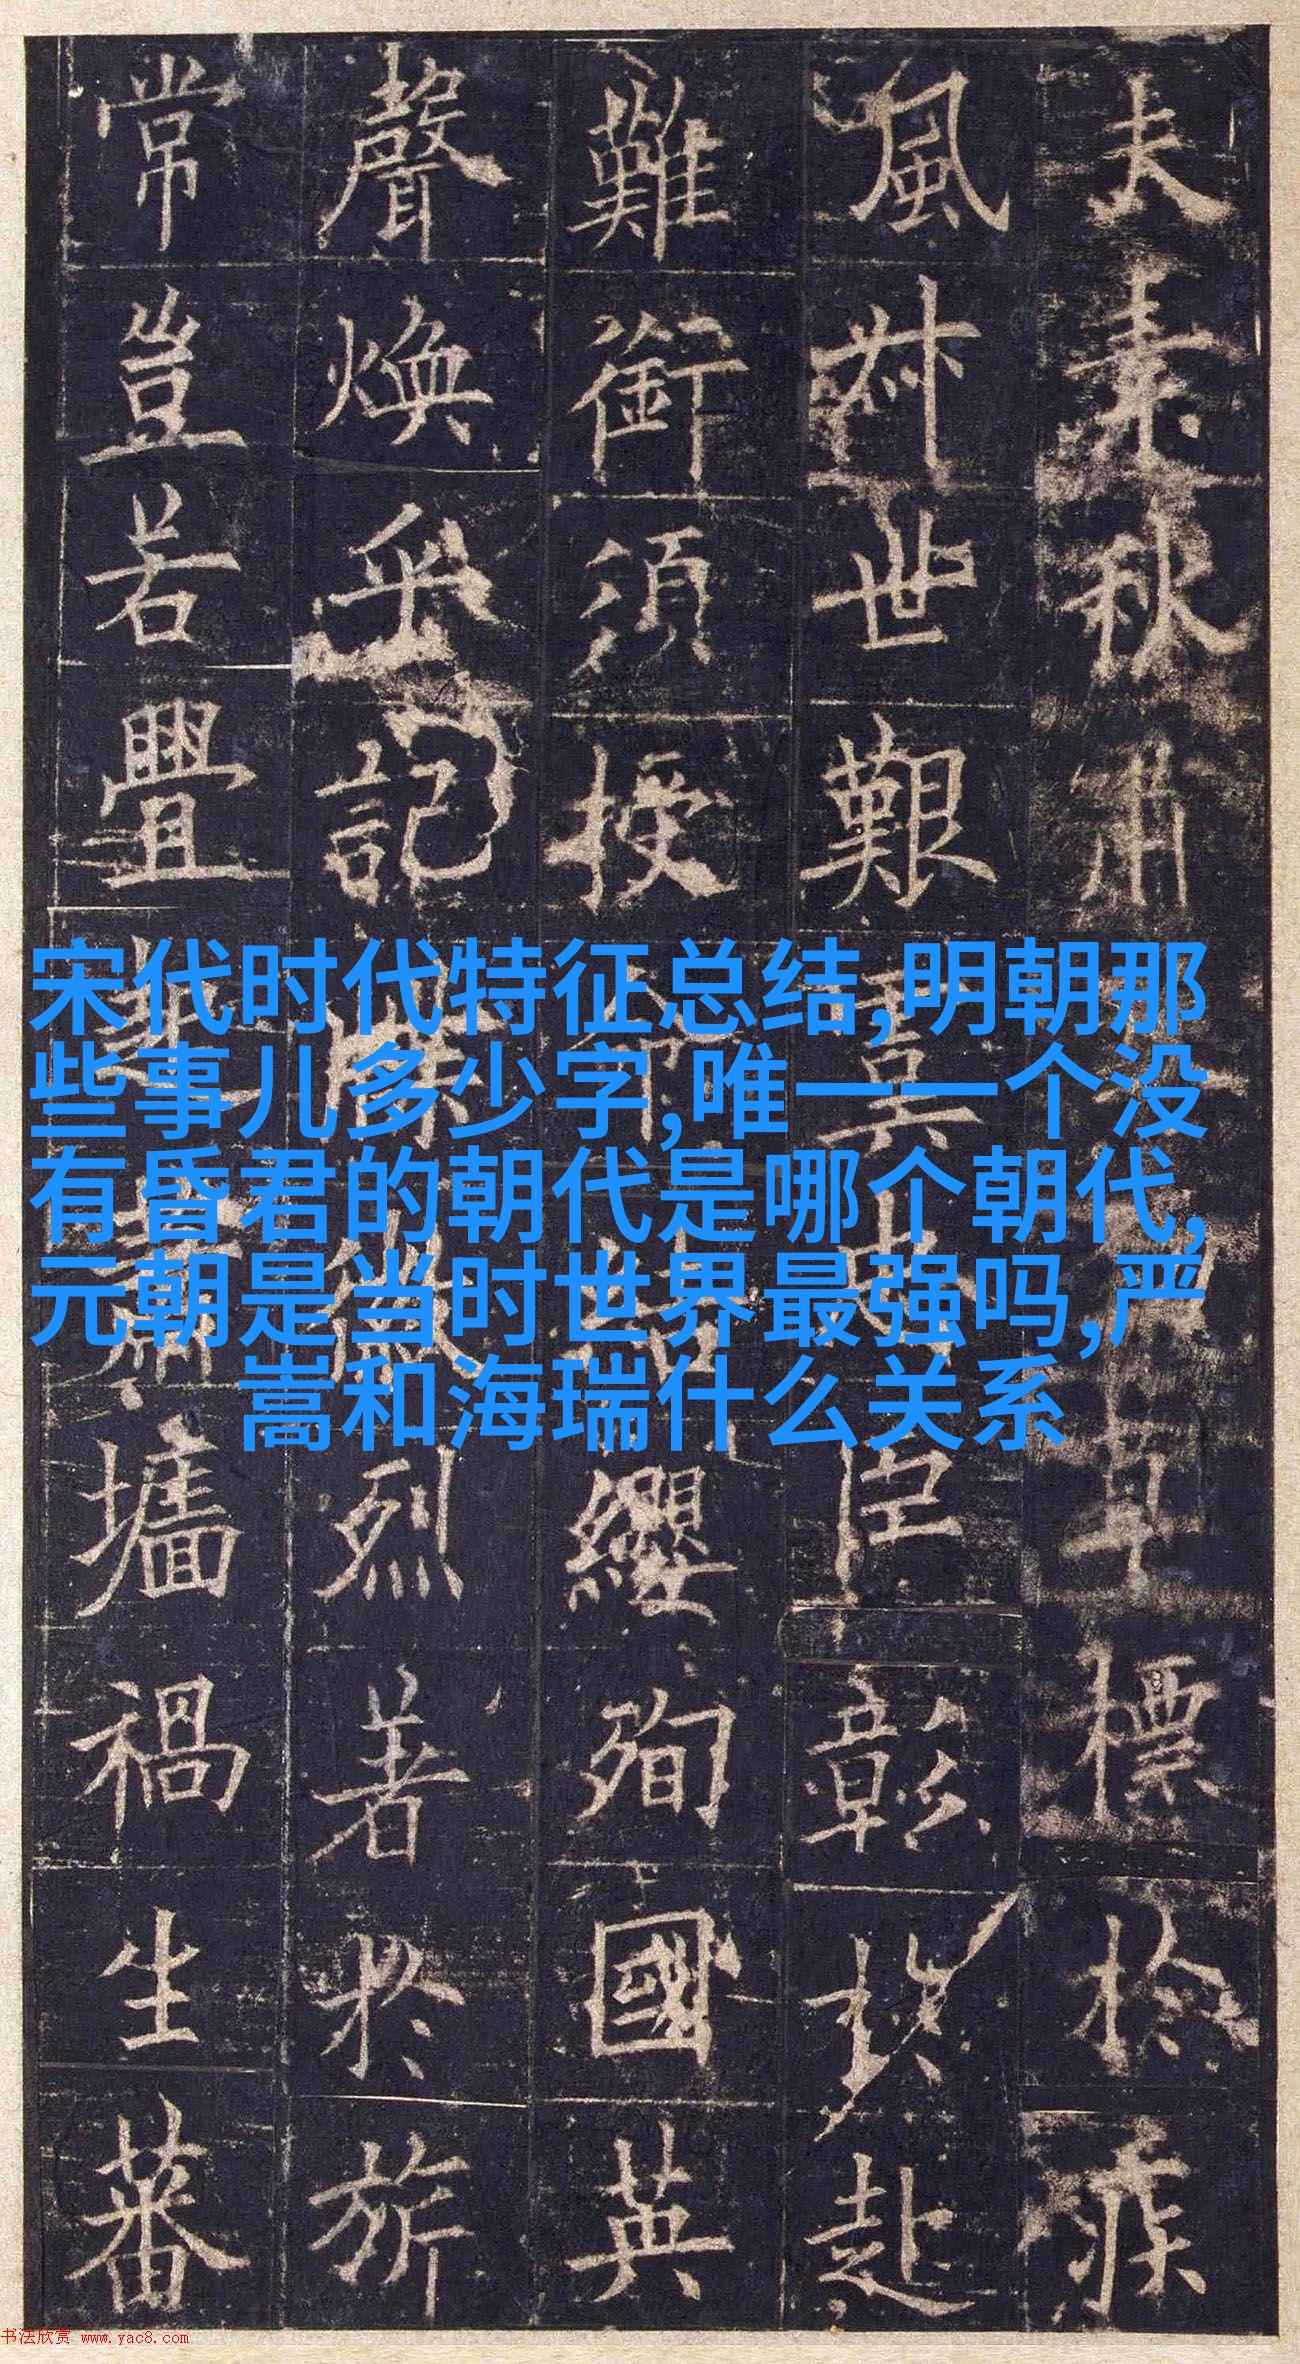 夫素秋肅草標於疾
風叶世艱虞忠臣彰於赴
難銜須授命結纓殉國英
聲煥乎記牒徽烈著於旂
常豈若舋起蕭墻禍生蕃
宋代时代特征总结,明朝那
些事儿多少字,唯一一个没
有昏君的朝代是哪个朝代,
元朝是当时世界最强吗,严
嵩和海瑞什么关系
书法欣赏 www.yac8.com